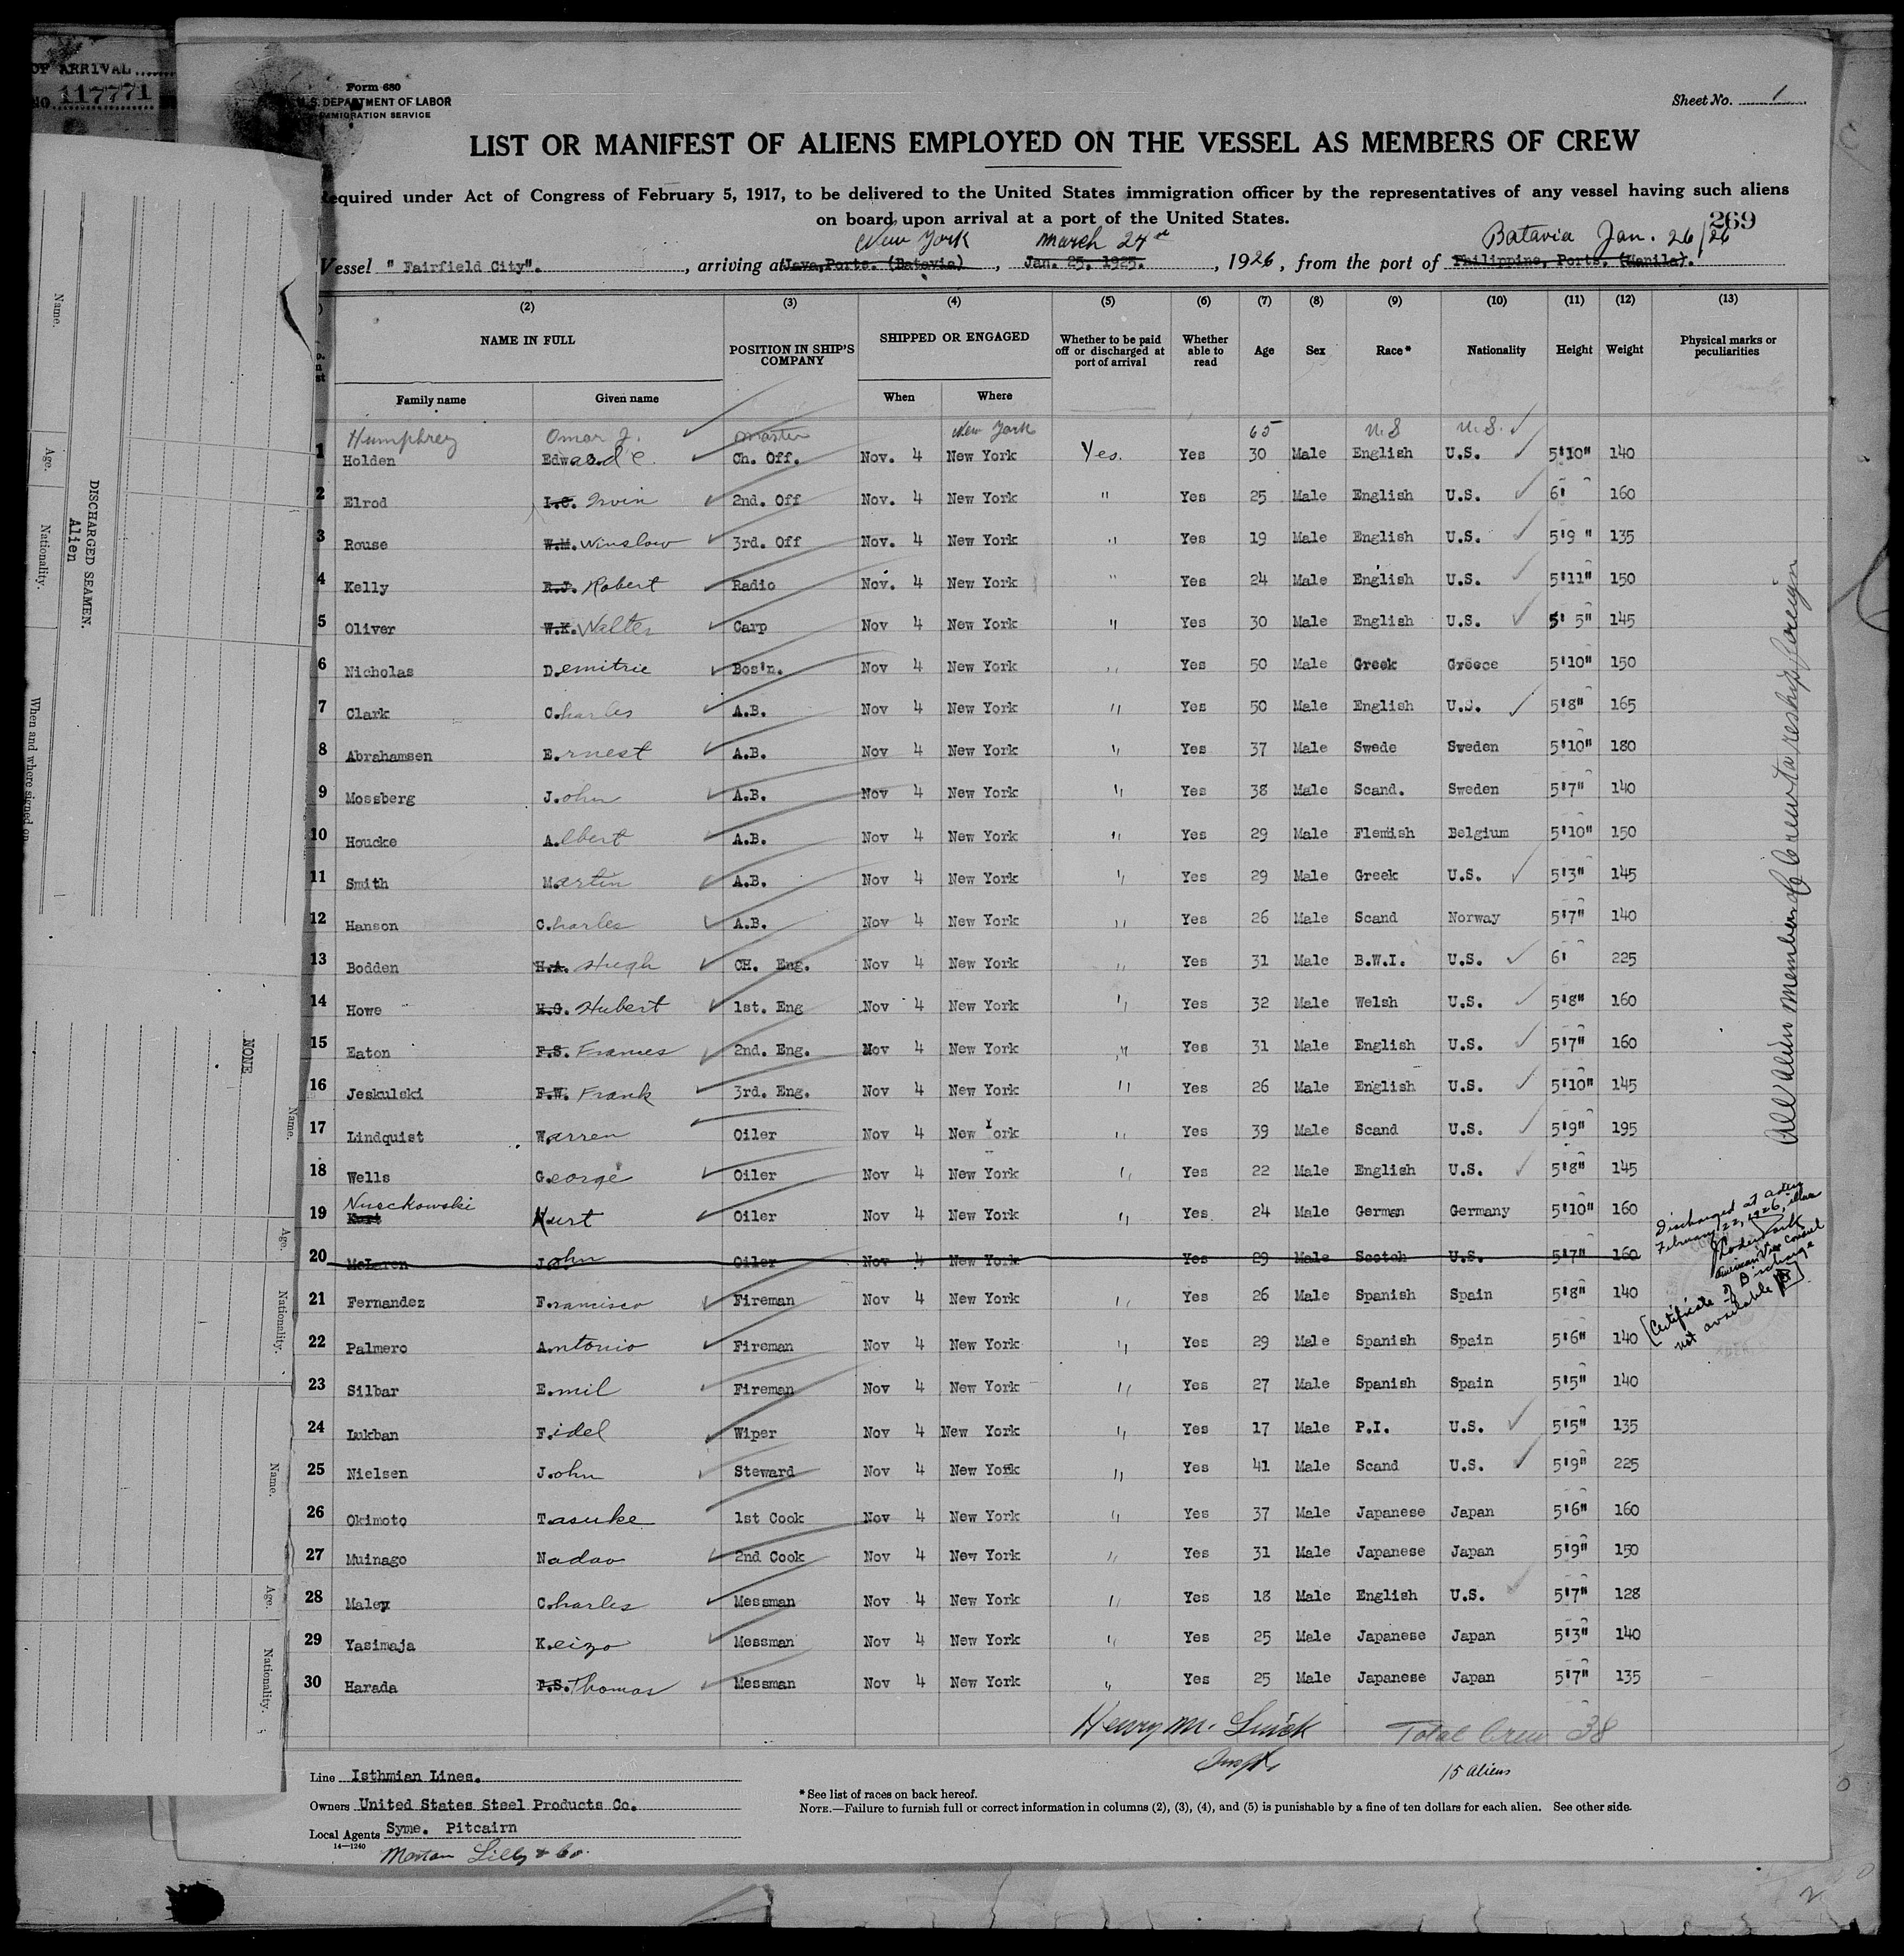 OF ARRIVAL
No 117771
Form 680
U.S. DEPARTMENT OF LABOR
IMMIGRATION SERVICE
Sheet No. 1
LIST OR MANIFEST OF ALIENS EMPLOYED ON THE VESSEL AS MEMBERS OF CREW
Required under Act of Congress of February 5, 1917, to be delivered to the United States immigration officer by the representatives of any vessel having such aliens
on board upon arrival at a port of the United States.
269
New York March 24th Batavia Jan. 26/26
Vessel "Fairfield City". , arriving at Java, Ports. (Batavia) , Jan. 25. 1925. , 1926, from the port of Philippine, Ports. (Manila).
(2) (3) (4) (5) (6) (7) (8) (9) (10) (11) (12) (13)
NAME IN FULL POSITION IN SHIP'S COMPANY SHIPPED OR ENGAGED Whether to be paid off or discharged at port of arrival Whether able to read Age Sex Race* Nationality Height Weight Physical marks or peculiarities
Family name Given name When Where
Humphrey Omar J. Master New York 65 U.S U.S.
1 Holden Edward C. Ch. Off. Nov. 4 New York Yes. Yes 30 Male English U.S. 5'10" 140
2 Elrod I.C. Irvin 2nd. Off Nov. 4 New York " Yes 25 Male English U.S. 6' 160
3 Rouse W.M. Winslow 3rd. Off Nov. 4 New York " Yes 19 Male English U.S. 5'9 " 135
4 Kelly R.J. Robert Radio Nov. 4 New York " Yes 24 Male English U.S. 5'11" 150
5 Oliver W.K. Walter Carp Nov 4 New York " Yes 30 Male English U.S. 5' 5" 145
6 Nicholas Demitrie Bos'n. Nov 4 New York " Yes 50 Male Greek Greece 5'10" 150
7 Clark Charles A.B. Nov 4 New York " Yes 50 Male English U.S. 5'8" 165
8 Abrahamsen Ernest A.B. Nov 4 New York " Yes 37 Male Swede Sweden 5'10" 180
9 Mossberg John A.B. Nov 4 New York " Yes 38 Male Scand. Sweden 5'7" 140
10 Houcke Albert A.B. Nov 4 New York " Yes 29 Male Flemish Belgium 5'10" 150
11 Smith Martin A.B. Nov 4 New York " Yes 29 Male Greek U.S. 5'3" 145
12 Hanson Charles A.B. Nov 4 New York " Yes 26 Male Scand Norway 5'7" 140
13 Bodden H.A. Hugh CH. Eng. Nov 4 New York " Yes 31 Male B.W.I. U.S. 6' 225
14 Howe H.G. Hubert 1st. Eng Nov 4 New York " Yes 32 Male Welsh U.S. 5'8" 160
15 Eaton F.S. Frances 2nd. Eng. Nov 4 New York " Yes 31 Male English U.S. 5'7" 160
16 Jeskulski F.W. Frank 3rd. Eng. Nov 4 New York " Yes 26 Male English U.S. 5'10" 145
17 Lindquist Warren Oiler Nov 4 New York " Yes 39 Male Scand U.S. 5'9" 195
18 Wells George Oiler Nov 4 New York " Yes 22 Male English U.S. 5'8" 145
19 Nusckowski Kurt Kurt Oiler Nov 4 New York " Yes. 24 Male German Germany 5'10" 160
20 McLaren John Oiler Nov 4 New York Yes 29 Male Scotch U.S. 5'7" 160
21 Fernandez Francisco Fireman Nov 4 New York " Yes 26 Male Spanish Spain 5'8" 140
22 Palmero Antonio Fireman Nov 4 New York " Yes 29 Male Spanish Spain 5'6" 140
23 Silbar Emil Fireman Nov 4 New York " Yes 27 Male Spanish Spain 5'5" 140
24 Lukban Fidel Wiper Nov 4 New York " Yes 17 Male P.I. U.S. 5'5" 135
25 Nielsen John Steward Nov 4 New York " Yes 41 Male Scand U.S. 5'9" 225
26 Okimoto Tasuke 1st Cook Nov 4 New York " Yes 37 Male Japanese Japan 5'6" 160
27 Muinago Nadao 2nd Cook Nov 4 New York " Yes 31 Male Japanese Japan 5'9" 150
28 Maley Charles Messman Nov 4 New York " Yes 18 Male English U.S. 5'7" 128
29 Yasimaja Keizo Messman Nov 4 New York " Yes 25 Male Japanese Japan 5'3" 140
30 Harada T.S. Thomas Messman Nov 4 New York " Yes 25 Male Japanese Japan 5'7" 135
All alien members of crew to reship foreign
Discharged at Aden
February 22, 1926,
American Vice Consul
[Certificate of Discharge
not available]
Henry M. Total Crew 38
Inspt. 15 aliens
Line Isthmian Lines.
Owners United States Steel Products Co.
Local Agents Syme. Pitcairn
14—1240
Norton Lilly & Co.
*See list of races on back hereof.
NOTE.—Failure to furnish full or correct information in columns (2), (3), (4), and (5) is punishable by a fine of ten dollars for each alien. See other side.
DISCHARGED SEAMEN.
Alien
Name. Age. Nationality. When and where signed on
NONE
Name. Age. Nationality.
Name. Age. Nationality.